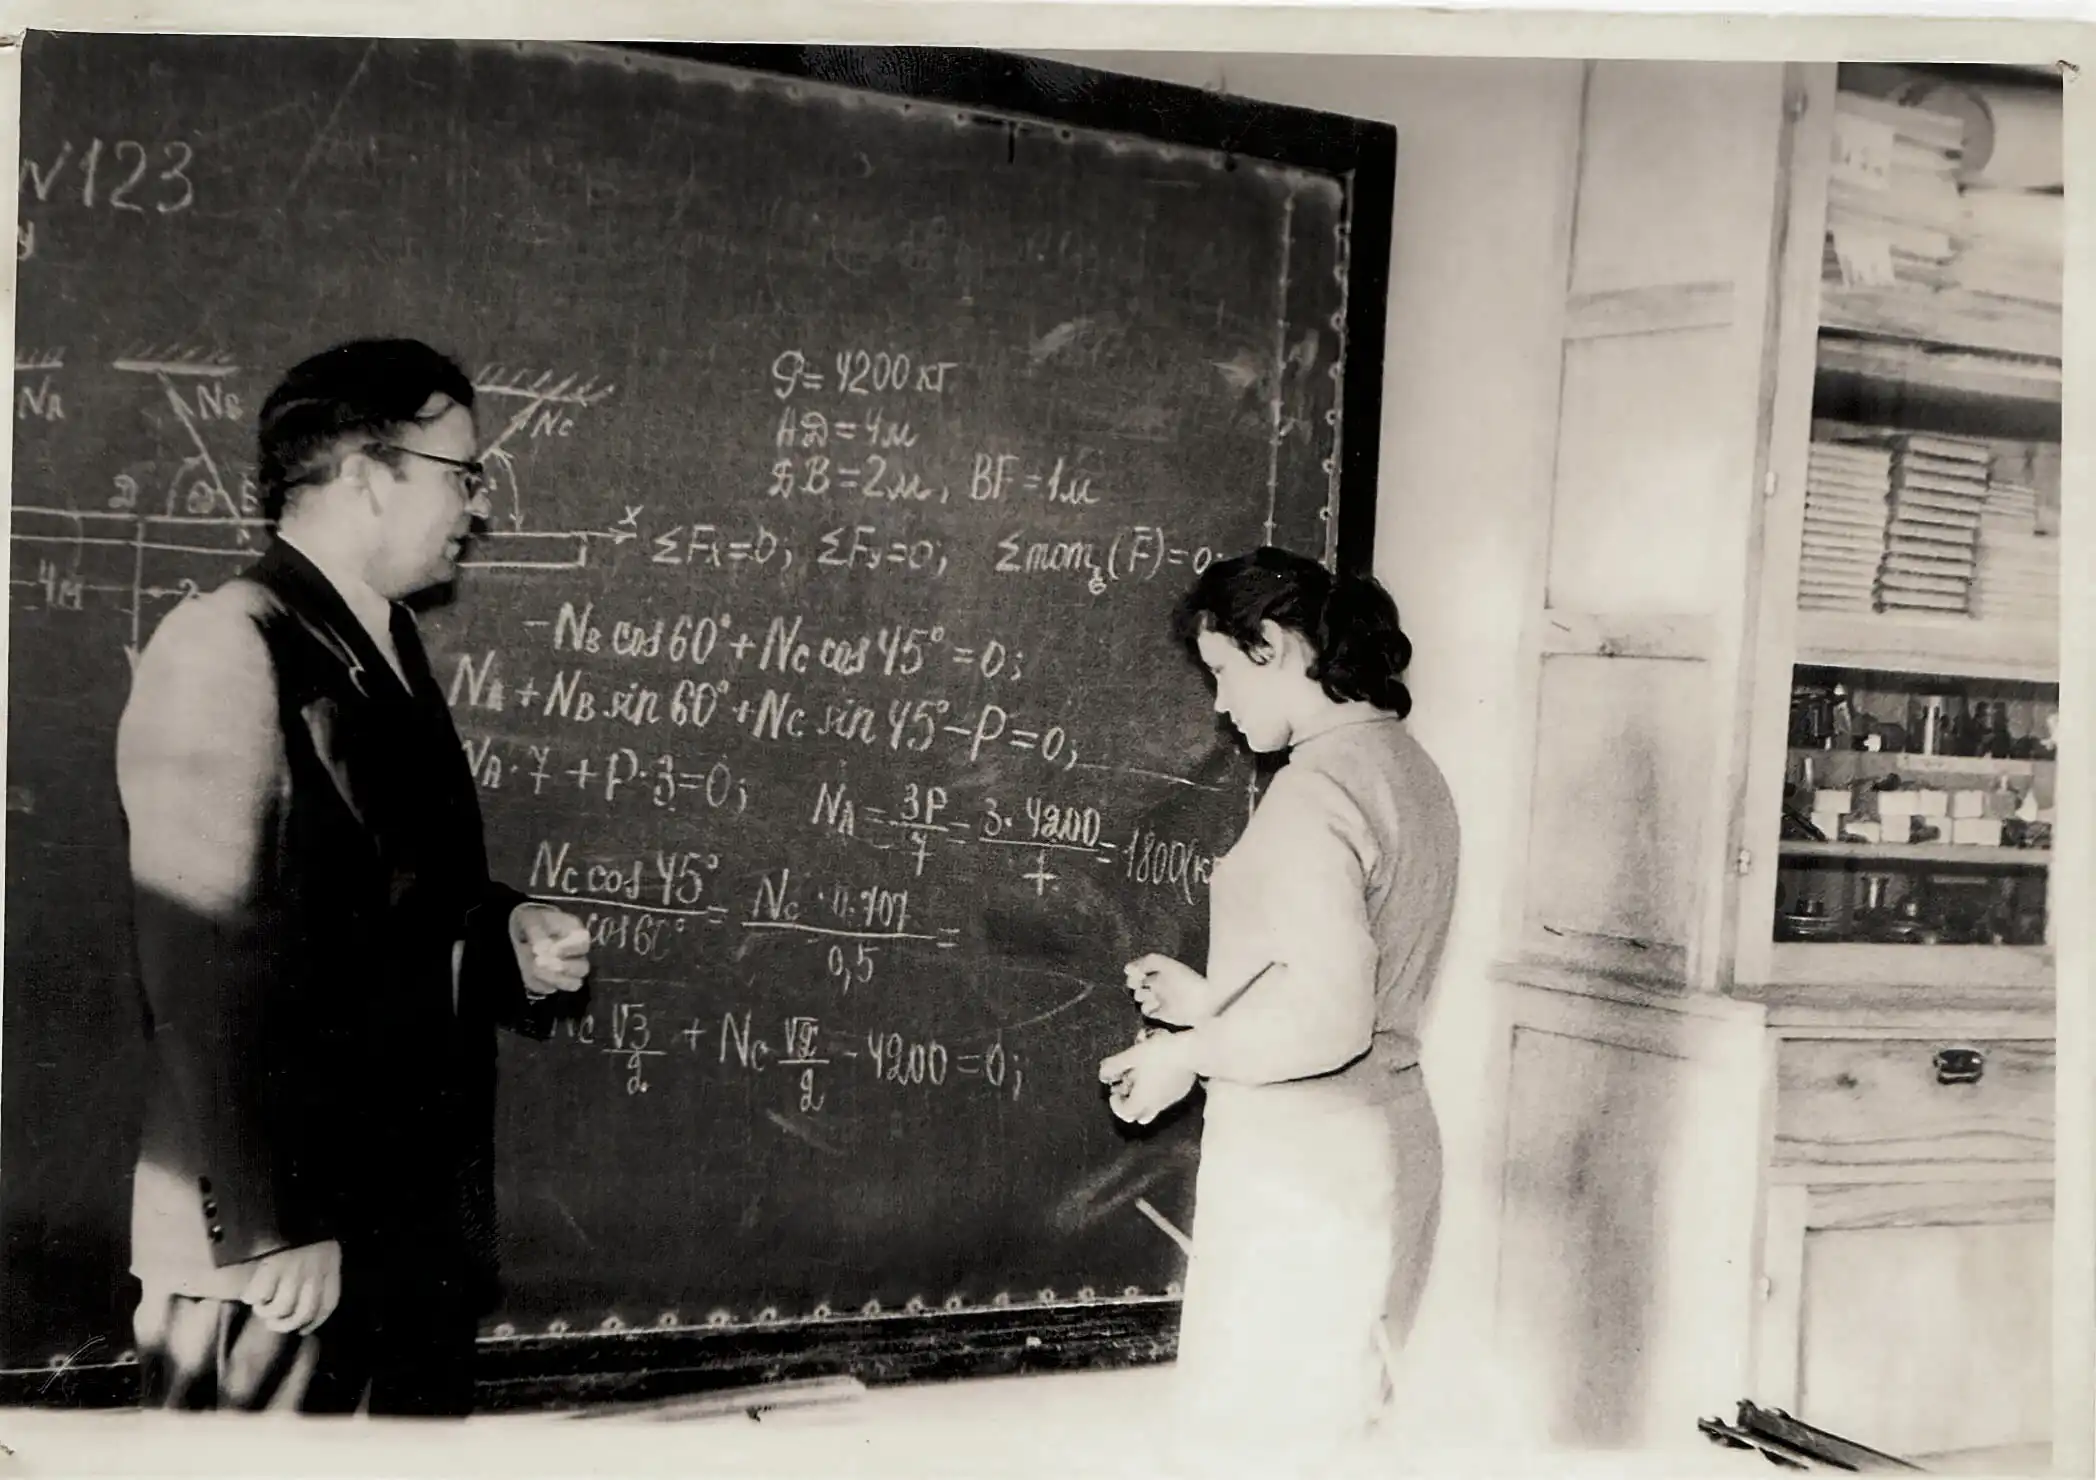 N123
у
N_A N_B N_C
G = 4200 кг
AD = 4м
DB = 2м, BF = 1м
x
ΣFx=0; ΣFy=0; Σmom_B(F̄)=0;
4м 2
-N_B cos 60° + N_C cos 45° = 0;
N_A + N_B sin 60° + N_C sin 45° - P = 0,
N_A · 7 + P · 3 = 0; N_A = 3P/7 = 3·4200/7 = 1800(к
N_C cos 45°/cos 60° = N_C · 0.707/0,5 =
N_C √3/2 + N_C √2/2 - 4200 = 0;